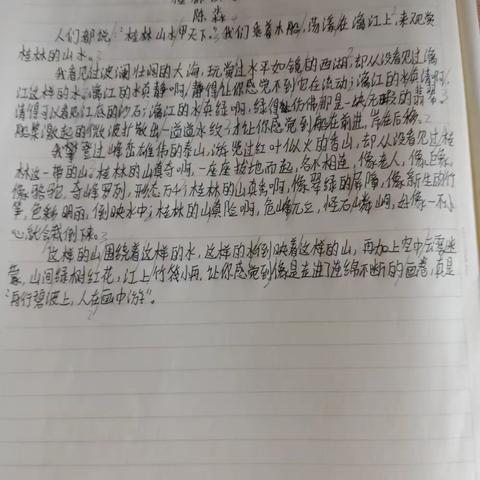 陈淼
人们都说:"桂林山水甲天下。"我们乘着木船,荡漾在漓江上,来观赏
桂林的山水。
我看见过波澜壮阔的大海,玩赏过水平如镜的西湖,却从没看见过漓
江这样的水。漓江的水真静啊,静得让你感觉不到它在流动;漓江的水真清啊,
清得可以看见江底的沙石;漓江的水真绿啊,绿得仿佛那是一块无瑕的翡翠。
船桨激起的微波扩散出一道道水纹,才让你感觉到船在前进,岸在后移。
我攀登过峰峦雄伟的泰山,游览过红叶似火的香山,却从没看见过桂
林这一带的山。桂林的山真奇啊,一座座拔地而起,各不相连,像老人,像巨象,
像骆驼,奇峰罗列,形态万千;桂林的山真秀啊,像翠绿的屏障,像新生的竹
笋,色彩明丽,倒映水中;桂林的山真险啊,危峰兀立,怪石嶙峋,好像一不小
心就会栽倒下来。
这样的山围绕着这样的水,这样的水倒映着这样的山,再加上空中云雾迷
蒙,山间绿树红花,江上竹筏小舟,让你感觉到像是走进了连绵不断的画卷,真是
"舟行碧波上,人在画中游"。